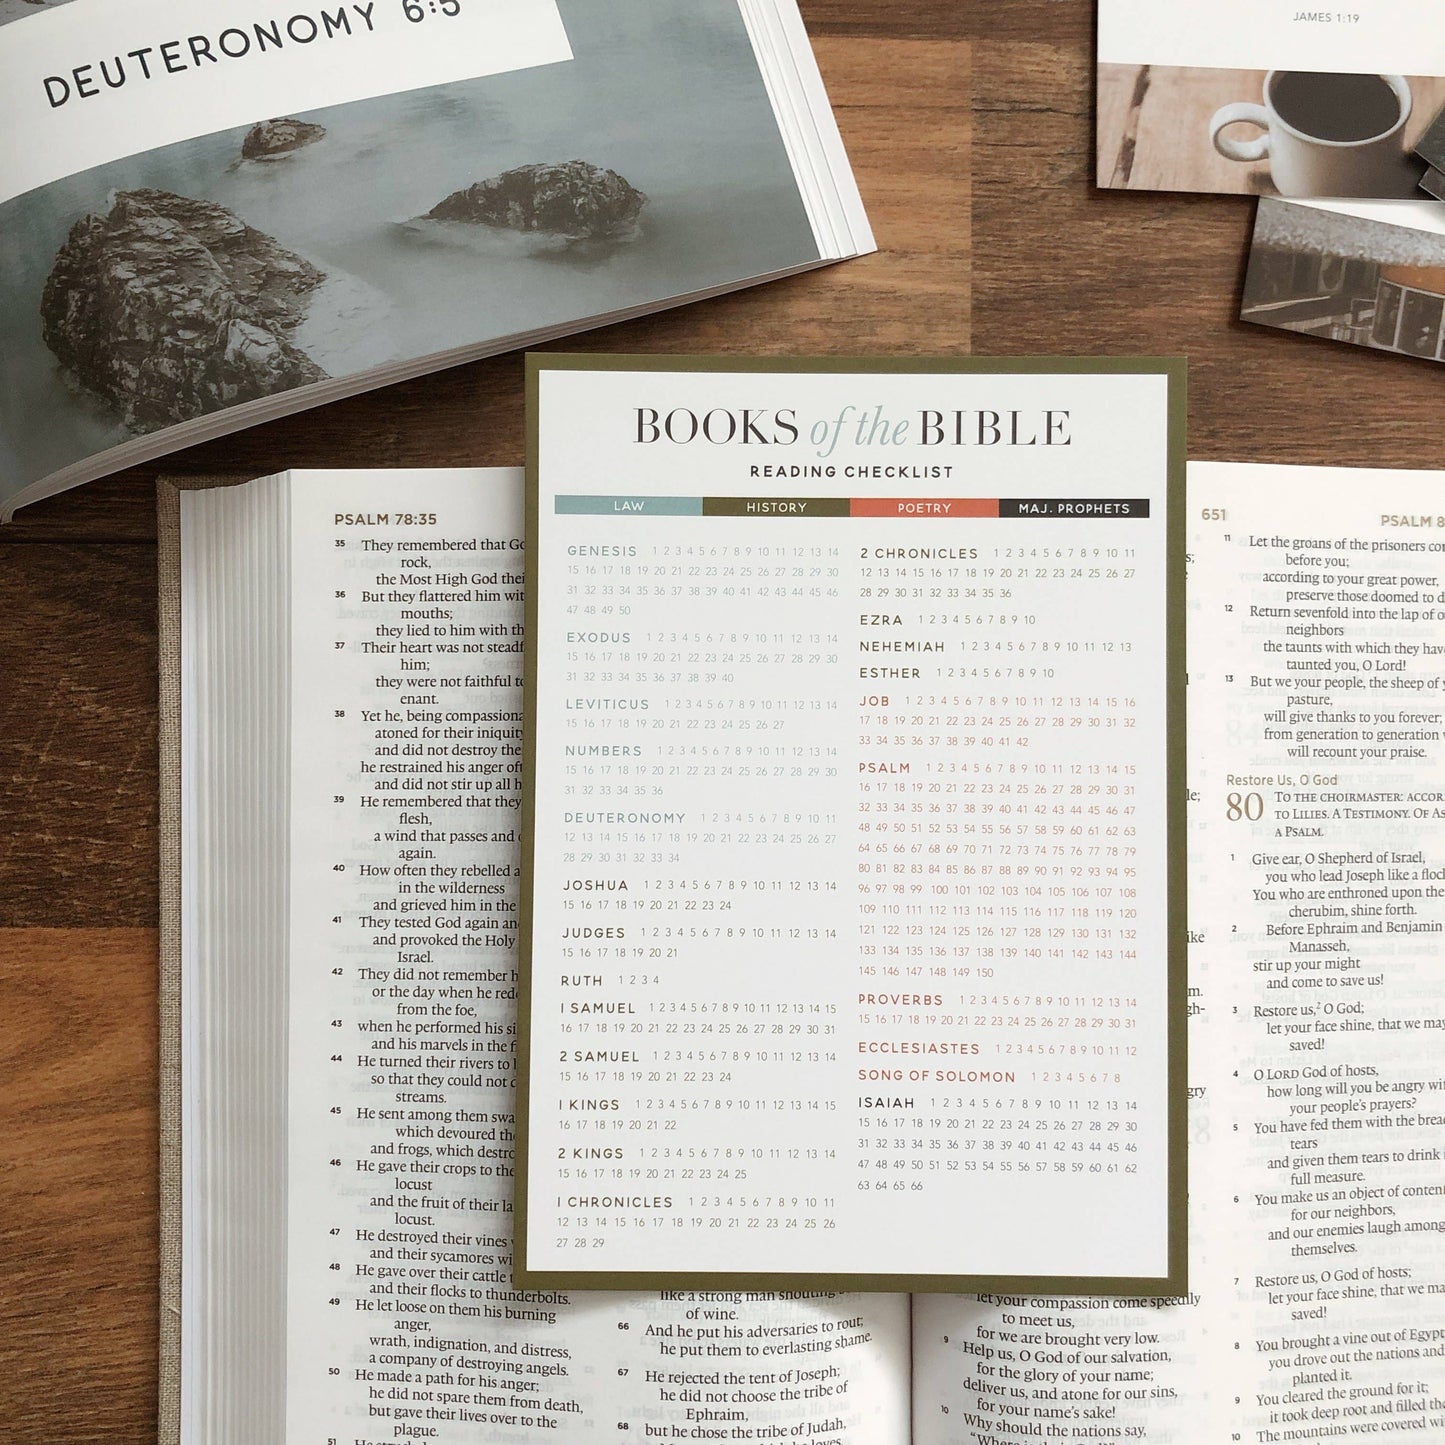 DEUTERONOMY 6:5
JAMES 1:19
BOOKS of the BIBLE
READING CHECKLIST
LAW HISTORY POETRY MAJ. PROPHETS
GENESIS 1 2 3 4 5 6 7 8 9 10 11 12 13 14
15 16 17 18 19 20 21 22 23 24 25 26 27 28 29 30
31 32 33 34 35 36 37 38 39 40 41 42 43 44 45 46
47 48 49 50
EXODUS 1 2 3 4 5 6 7 8 9 10 11 12 13 14
15 16 17 18 19 20 21 22 23 24 25 26 27 28 29 30
31 32 33 34 35 36 37 38 39 40
LEVITICUS 1 2 3 4 5 6 7 8 9 10 11 12 13 14
15 16 17 18 19 20 21 22 23 24 25 26 27
NUMBERS 1 2 3 4 5 6 7 8 9 10 11 12 13 14
15 16 17 18 19 20 21 22 23 24 25 26 27 28 29 30
31 32 33 34 35 36
DEUTERONOMY 1 2 3 4 5 6 7 8 9 10 11
12 13 14 15 16 17 18 19 20 21 22 23 24 25 26 27
28 29 30 31 32 33 34
JOSHUA 1 2 3 4 5 6 7 8 9 10 11 12 13 14
15 16 17 18 19 20 21 22 23 24
JUDGES 1 2 3 4 5 6 7 8 9 10 11 12 13 14
15 16 17 18 19 20 21
RUTH 1 2 3 4
1 SAMUEL 1 2 3 4 5 6 7 8 9 10 11 12 13 14 15
16 17 18 19 20 21 22 23 24 25 26 27 28 29 30 31
2 SAMUEL 1 2 3 4 5 6 7 8 9 10 11 12 13 14
15 16 17 18 19 20 21 22 23 24
1 KINGS 1 2 3 4 5 6 7 8 9 10 11 12 13 14 15
16 17 18 19 20 21 22
2 KINGS 1 2 3 4 5 6 7 8 9 10 11 12 13 14
15 16 17 18 19 20 21 22 23 24 25
1 CHRONICLES 1 2 3 4 5 6 7 8 9 10 11
12 13 14 15 16 17 18 19 20 21 22 23 24 25 26
27 28 29
2 CHRONICLES 1 2 3 4 5 6 7 8 9 10 11
12 13 14 15 16 17 18 19 20 21 22 23 24 25 26 27
28 29 30 31 32 33 34 35 36
EZRA 1 2 3 4 5 6 7 8 9 10
NEHEMIAH 1 2 3 4 5 6 7 8 9 10 11 12 13
ESTHER 1 2 3 4 5 6 7 8 9 10
JOB 1 2 3 4 5 6 7 8 9 10 11 12 13 14 15 16
17 18 19 20 21 22 23 24 25 26 27 28 29 30 31 32
33 34 35 36 37 38 39 40 41 42
PSALM 1 2 3 4 5 6 7 8 9 10 11 12 13 14 15
16 17 18 19 20 21 22 23 24 25 26 27 28 29 30 31
32 33 34 35 36 37 38 39 40 41 42 43 44 45 46 47
48 49 50 51 52 53 54 55 56 57 58 59 60 61 62 63
64 65 66 67 68 69 70 71 72 73 74 75 76 77 78 79
80 81 82 83 84 85 86 87 88 89 90 91 92 93 94 95
96 97 98 99 100 101 102 103 104 105 106 107 108
109 110 111 112 113 114 115 116 117 118 119 120
121 122 123 124 125 126 127 128 129 130 131 132
133 134 135 136 137 138 139 140 141 142 143 144
145 146 147 148 149 150
PROVERBS 1 2 3 4 5 6 7 8 9 10 11 12 13 14
15 16 17 18 19 20 21 22 23 24 25 26 27 28 29 30 31
ECCLESIASTES 1 2 3 4 5 6 7 8 9 10 11 12
SONG OF SOLOMON 1 2 3 4 5 6 7 8
ISAIAH 1 2 3 4 5 6 7 8 9 10 11 12 13 14
15 16 17 18 19 20 21 22 23 24 25 26 27 28 29 30
31 32 33 34 35 36 37 38 39 40 41 42 43 44 45 46
47 48 49 50 51 52 53 54 55 56 57 58 59 60 61 62
63 64 65 66
PSALM 78:35
35 They remembered that
rock,
the Most High God
36 But they flattered him
mouths;
they lied to him with
37 Their heart was not
him;
they were not faithful
enant.
38 Yet he, being
atoned for their
and did not destroy
he restrained his anger
and did not stir up all
39 He remembered that they
flesh,
a wind that passes and
again.
40 How often they rebelled
in the wilderness
and grieved him in the
41 They tested God again
and provoked the Holy
Israel.
42 They did not remember
or the day when he
from the foe,
43 when he performed his
and his marvels in the
44 He turned their rivers to
so that they could not
streams.
45 He sent among them
which devoured
and frogs, which
46 He gave their crops to the
locust
and the fruit of their
locust.
47 He destroyed their vines
and their sycamores
48 He gave over their cattle
and their flocks to thunderbolts.
49 He let loose on them his burning
anger,
wrath, indignation, and distress,
a company of destroying angels.
50 He made a path for his anger;
he did not spare them from death,
but gave their lives over to the
plague.
51
like a strong man
of wine.
66 And he put his adversaries to rout;
he put them to everlasting shame.
67 He rejected the tent of Joseph;
he did not choose the tribe of
Ephraim,
68 but he chose the tribe of Judah,
let your compassion come speedily
to meet us,
for we are brought very low.
9 Help us, O God of our salvation,
for the glory of your name;
deliver us, and atone for our sins,
for your name's sake!
10 Why should the nations say,
651
PSALM
11 Let the groans of the prisoners
before you;
according to your great power,
preserve those doomed to
12 Return sevenfold into the lap of
neighbors
the taunts with which they
taunted you, O Lord!
13 But we your people, the sheep of
pasture,
will give thanks to you forever;
from generation to generation
will recount your praise.
Restore Us, O God
80 TO THE CHOIRMASTER:
TO LILIES. A TESTIMONY. OF
A PSALM.
1 Give ear, O Shepherd of Israel,
you who lead Joseph like a
You who are enthroned upon the
cherubim, shine forth.
2 Before Ephraim and Benjamin
Manasseh,
stir up your might
and come to save us!
3 Restore us,² O God;
let your face shine, that we may
saved!
4 O LORD God of hosts,
how long will you be angry
your people's prayers?
5 You have fed them with the
tears
and given them tears to drink
full measure.
6 You make us an object of
for our neighbors,
and our enemies laugh among
themselves.
7 Restore us, O God of hosts;
let your face shine, that we
saved!
8 You brought a vine out of Egypt
you drove out the nations and
planted it.
9 You cleared the ground for it;
it took deep root and filled
10 The mountains were covered